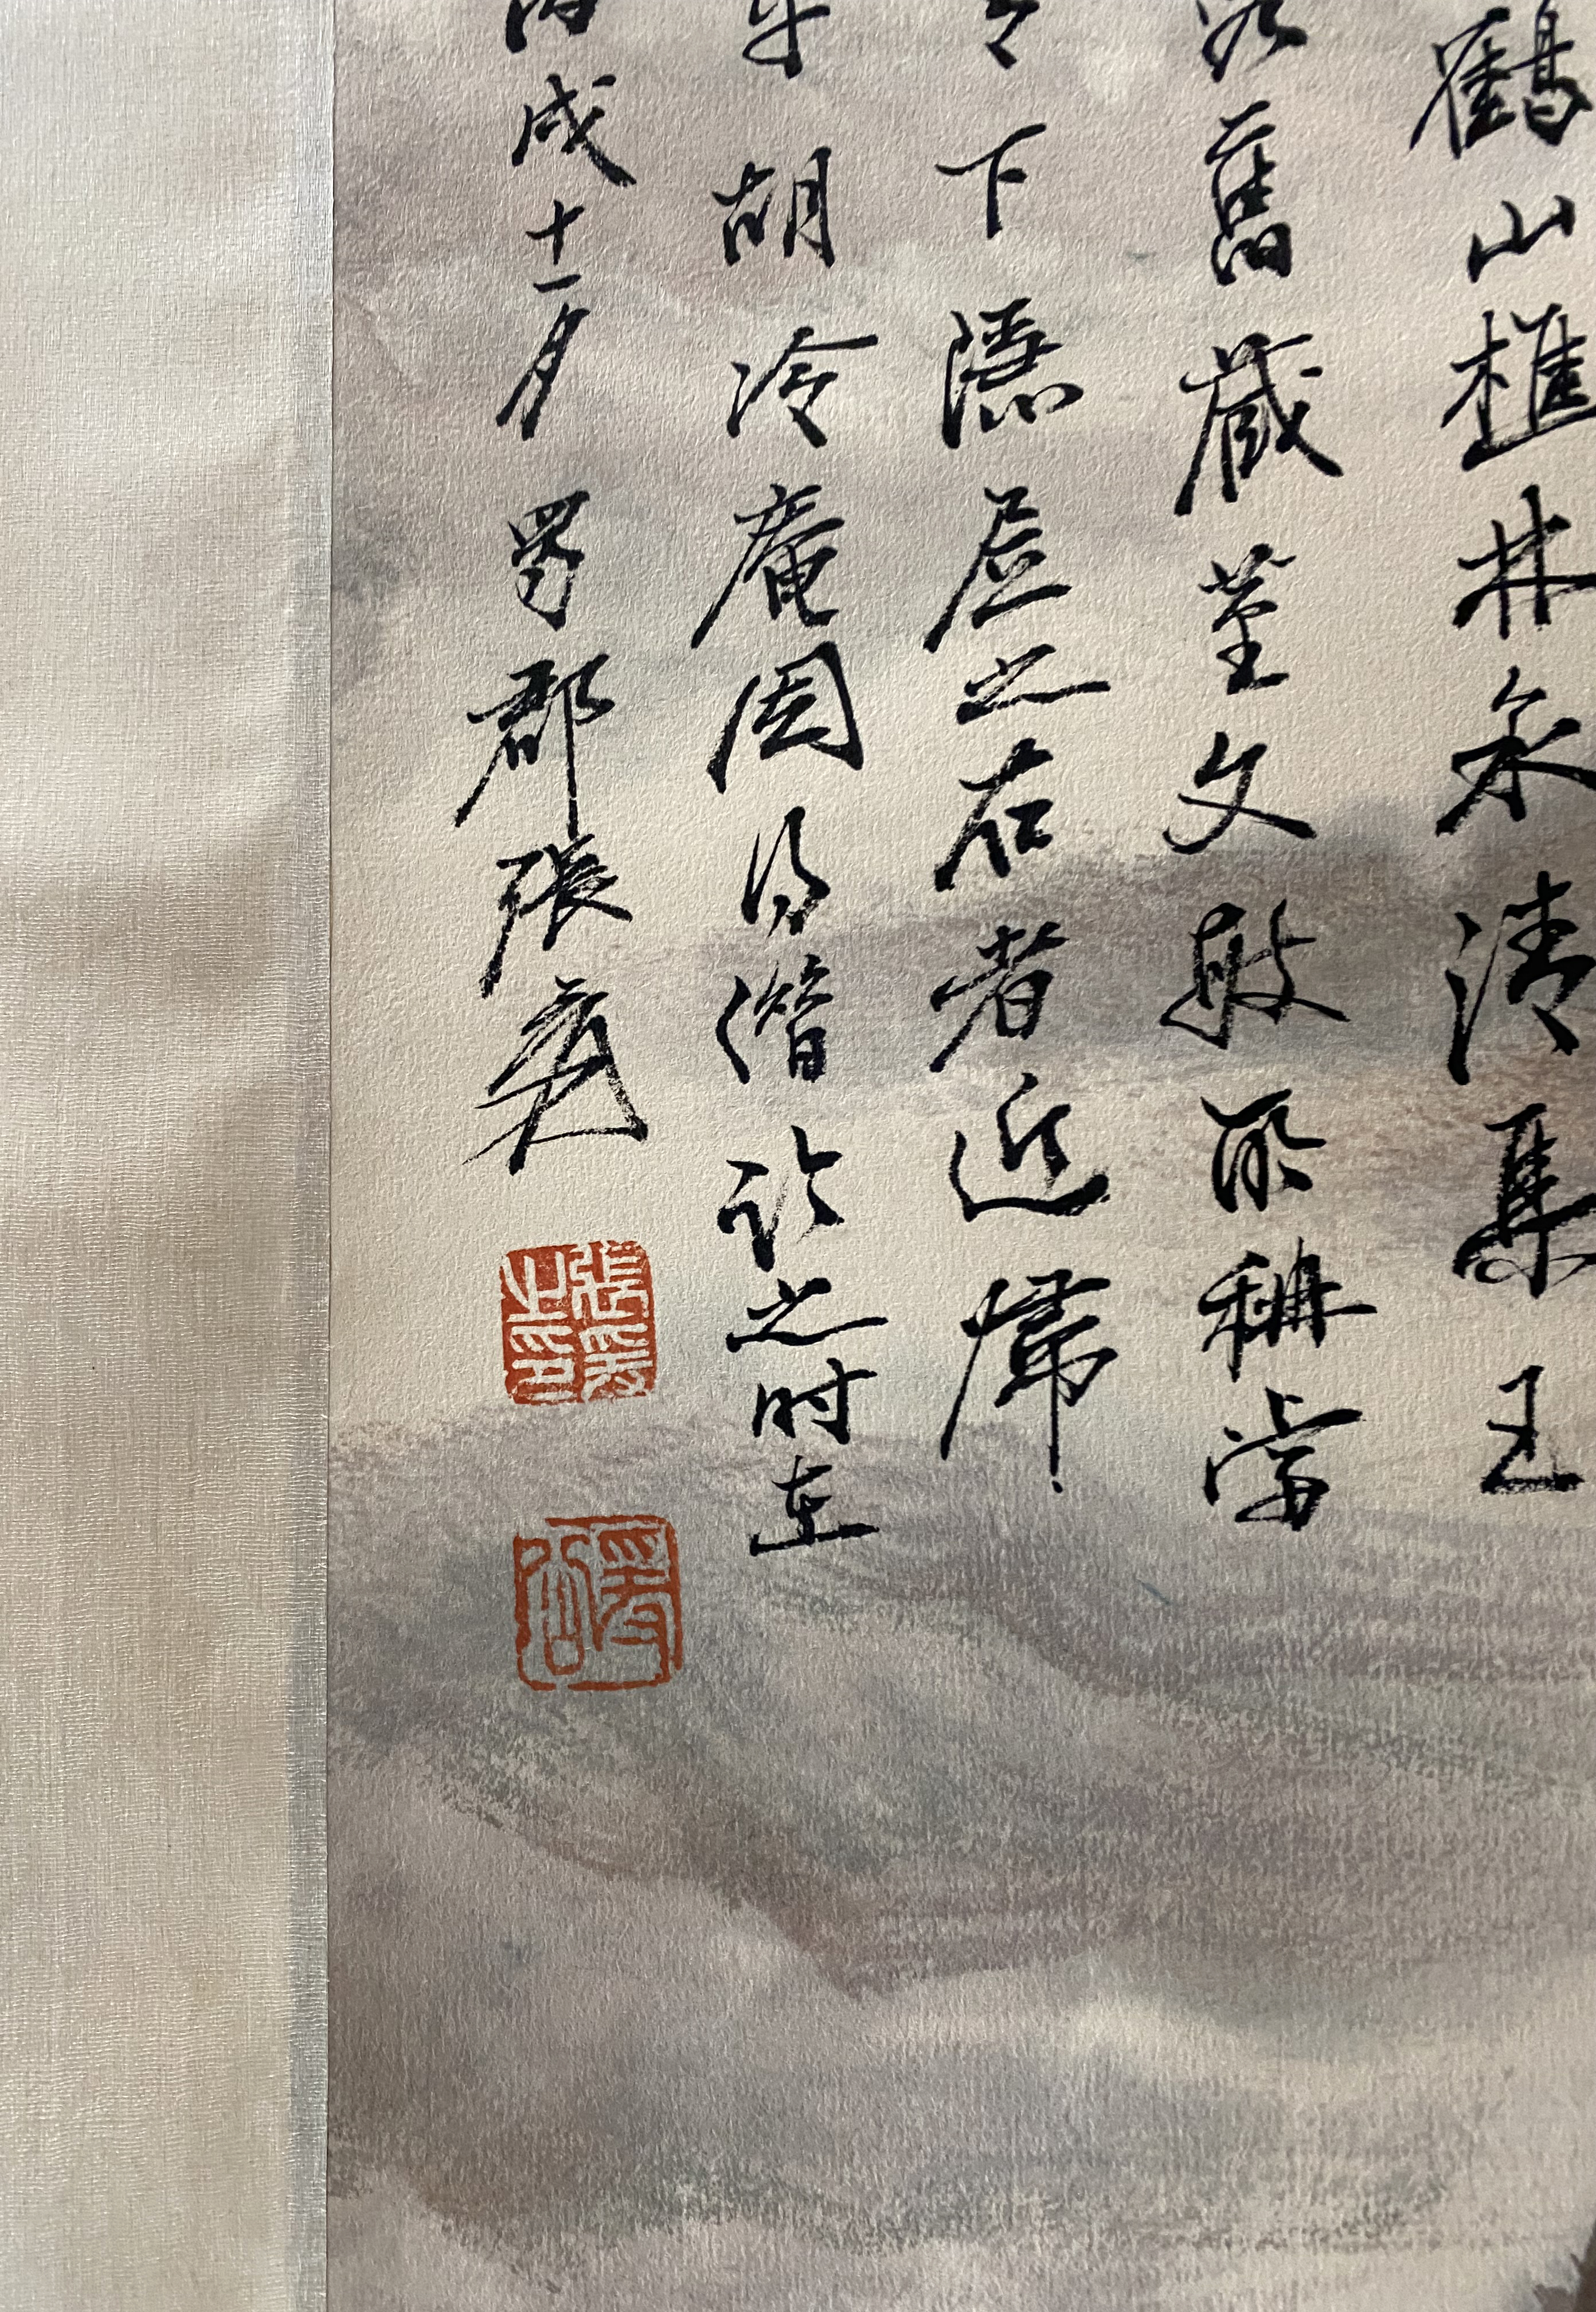 鶴山樵林泉清集王
舊藏董文敏所稱當
下隱居之右者近歸
平胡冷庵因得借詺之时在
戌十一月蜀郡張爰
張爰之印
大千